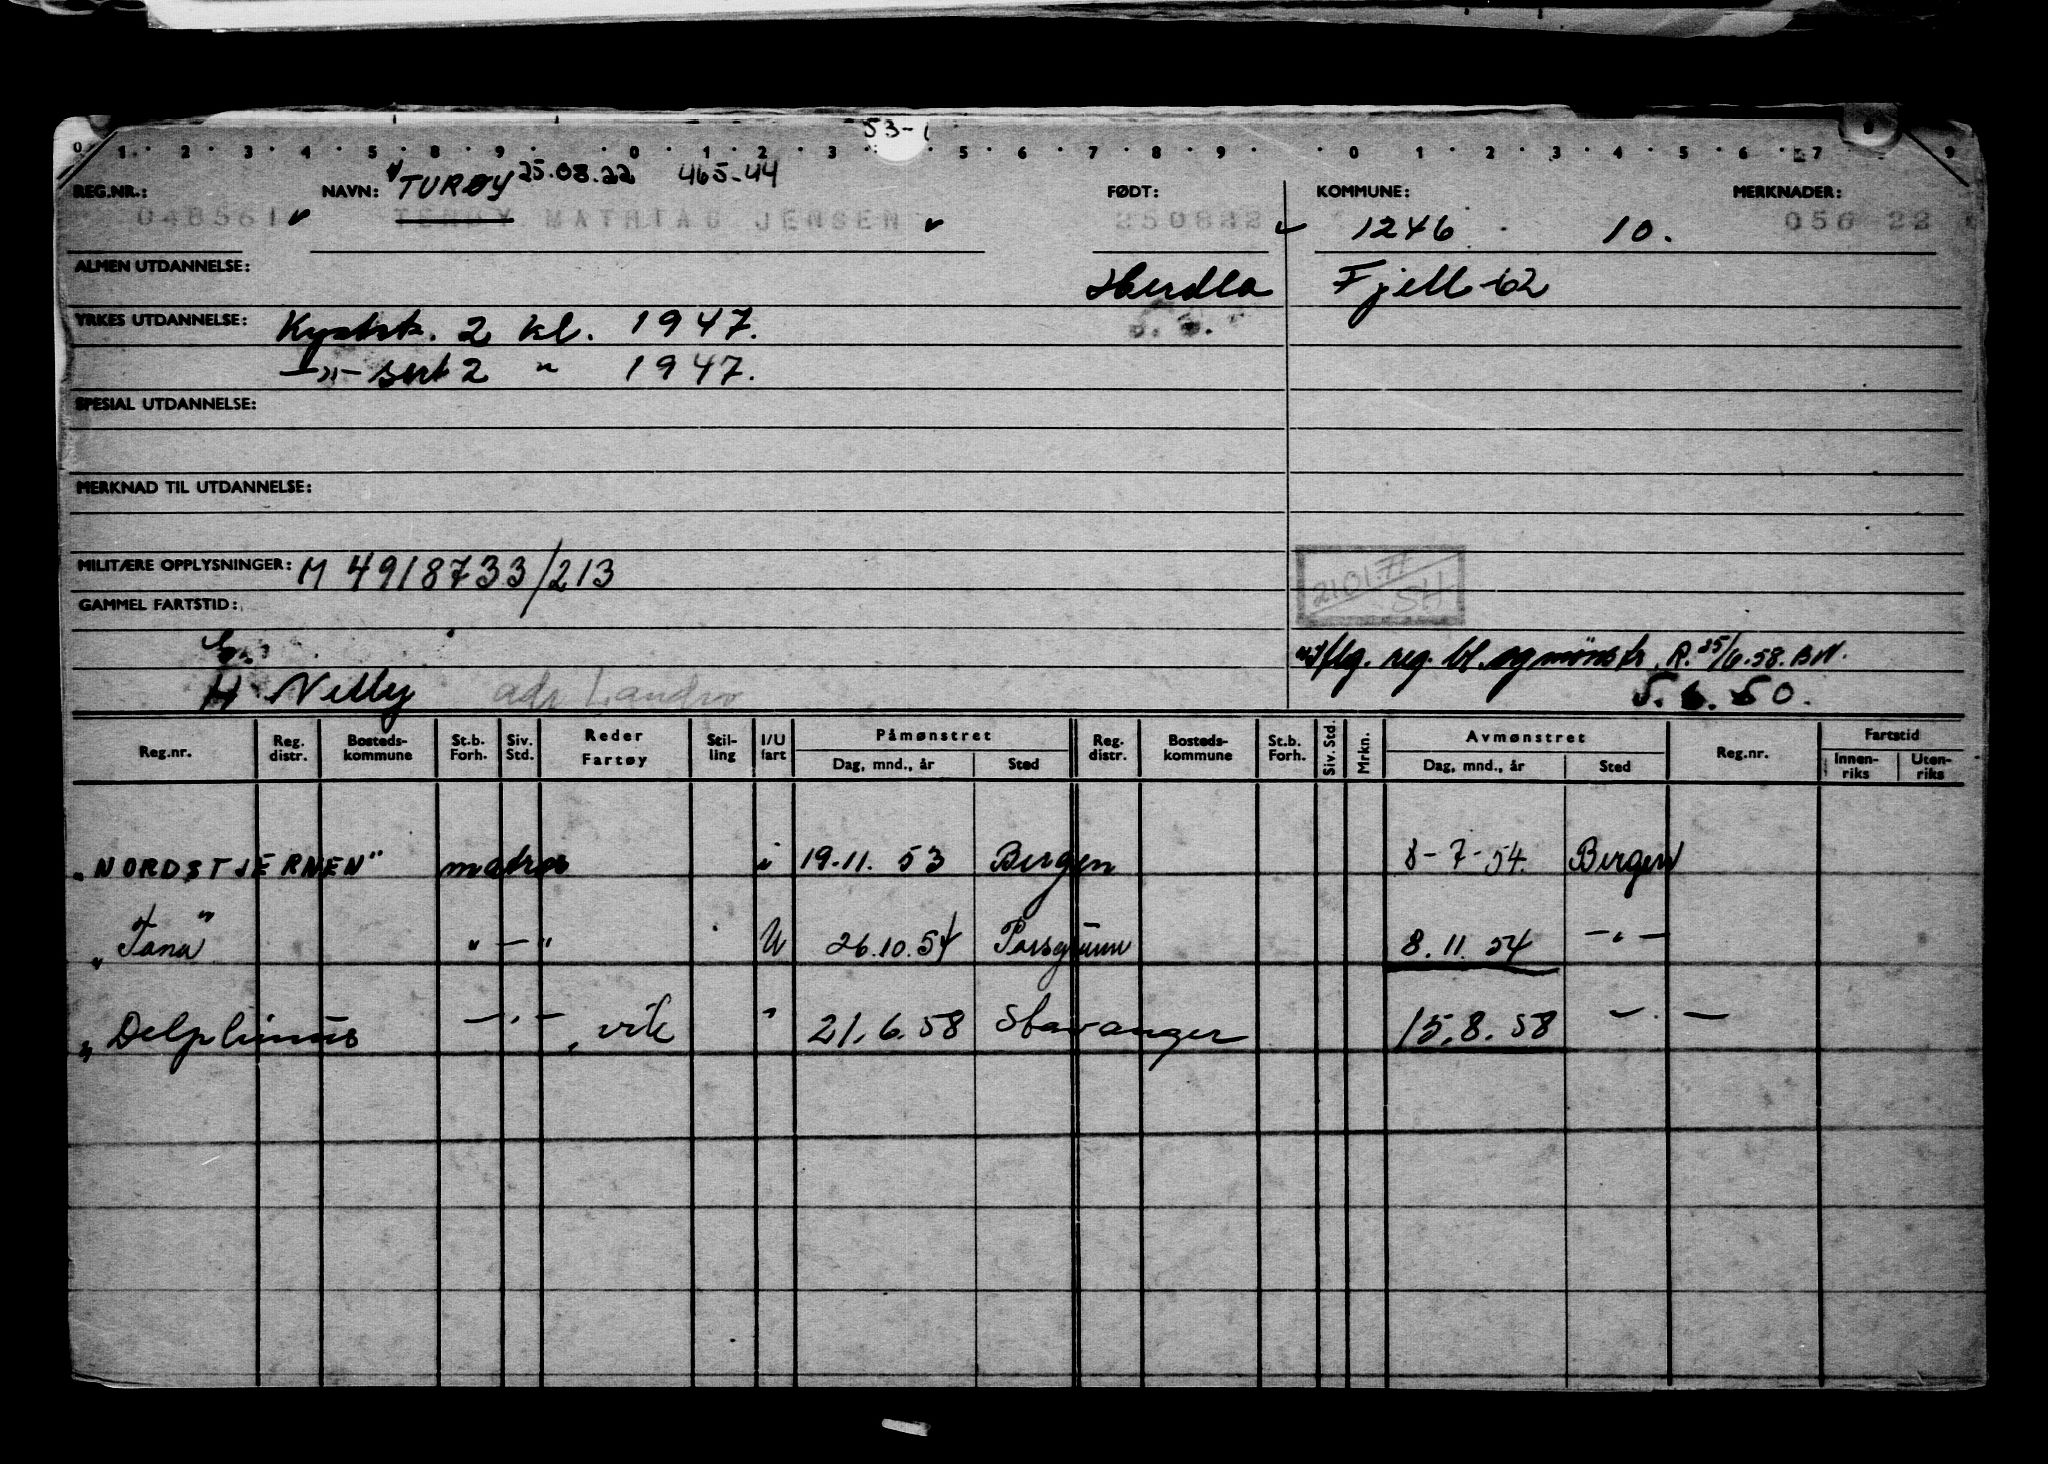 53-1
0 1 2 3 4 5 8 9 0 1 2 3 5 6 7 8 9 0 1 2 3 4 5 6 7 9
TURØY 25.08.22 465-44
REG.NR.: NAVN: FØDT: KOMMUNE: MERKNADER:
048561 TERØY MATHIAS JENSEN 250822 1246 10. 056 22
ALMEN UTDANNELSE: Herdla Fjell 62
YRKES UTDANNELSE: Kystsk. 2 kl. 1947.
—"— sert 2 " 1947.
SPESIAL UTDANNELSE:
MERKNAD TIL UTDANNELSE:
MILITÆRE OPPLYSNINGER: M 4918733/213
2101.77
SH
GAMMEL FARTSTID:
reg. bl. og mønstr. R. 25/6.58. BN.
H Nelly adr Landro 5. 6. 50.
Reg.nr. Reg. distr. Bosteds-kommune St.b. Forh. Siv. Std. Reder Fartøy Stil-ling I/U fart Påmønstret Dag, mnd., år Sted Reg. distr. Bosteds-kommune St.b. Forh. Siv. Std. Mrkn. Avmønstret Dag, mnd., år Sted Reg.nr. Fartstid Innen-riks Uten-riks
„NORDSTJERNEN" matros i 19.11. 53 Bergen 8-7-54. Bergen
„Tana" "—" U 26.10.54 Porsgrunn 8.11.54 —"—
„Delphinus —"— vik " 21.6.58 Stavanger 15.8.58 —"—